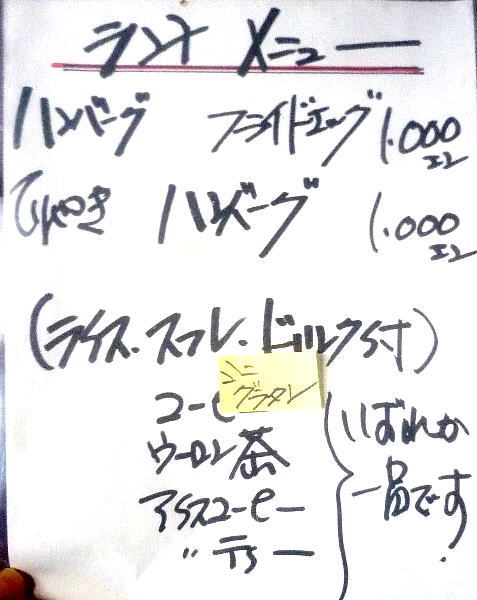 ランチ メニュー
ハンバーグ フライドエッグ 1.000エン
てりやき ハンバーグ 1.000エン
(ライス.スフレ.ドリンク付)
コーヒ
ミニ
グラタン
ウーロン茶
アイスコーヒー
〃 ティー
いずれか
一品です.